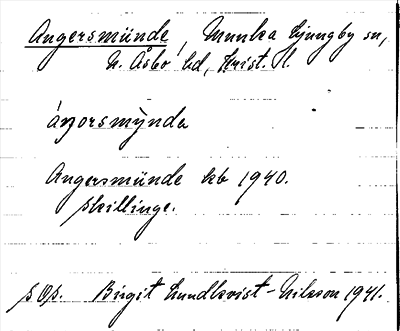 Angersmünde, Munka Ljungby sn,
N. Åsbo hd, Krist. l.
áŋorsmỳndə
Angersmünde kb 1940.
skillinge.
s Op. Birgit Lundkvist-Nilsson 1941.